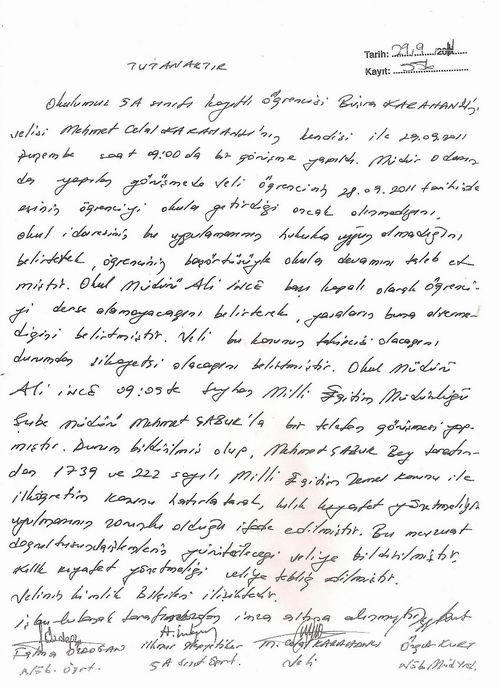 Tarih: 29.9./2011
Kayıt: 556
TUTANAKTIR
Okulumuz 5A sınıfı kayıtlı öğrencisi Büşra KARAHANLI'nın
velisi Mehmet Celal KARAHANLI'nın kendisi ile 29.09.2011
perşembe saat 09:00 da bir görüşme yapıldı. Müdür odasın
da yapılan görüşmede veli öğrencinin 28.09.2011 tarihinde
eşinin öğrenciyi okula getirdiği ancak alınmadığını,
okul idaresinin bu uygulamasının hukuka uygun olmadığını
belirterek, öğrencinin başörtüsüyle okula devamını talep et
miştir. Okul Müdürü Ali İNCE başı kapalı olarak öğrenci-
yi derse alamayacağını belirterek, yasaların buna izin verme-
diğini belirtmiştir. Veli bu konunun takipçisi olacağını
durumdan şikayetçi olacağını belirtmiştir. Okul Müdürü
Ali İNCE 09:05te Seyhan Milli Eğitim Müdürlüğü
Şube Müdürü Mehmet ŞABUR'la bir telefon görüşmesi yap-
mıştır. Durum bildirilmiş olup, Mehmet ŞABUR Bey tarafın-
dan 1739 ve 222 sayılı Milli Eğitim Temel Kanunu ile
ilköğretim kanunu hatırlatarak, kılık kıyafet yönetmeliğine
uyulmasının zorunlu olduğu ifade edilmiştir. Bu mevzuat
doğrultusunda işlemlerin yürütüleceği veliye bildirilmiştir.
Kılık kıyafet yönetmeliği veliye tebliğ edilmiştir.
Velinin kimlik bilgileri ilişiktedir.
iş bu tutanak tarafımızdan imza altına alınmıştır.
Fatma ÖZDOĞAN
M. Celal KARAHANLI Özgür KURT
Nöb. Öğrt. 5A Sınıf Öğrt. Veli Nöb. Müd. Yrd.